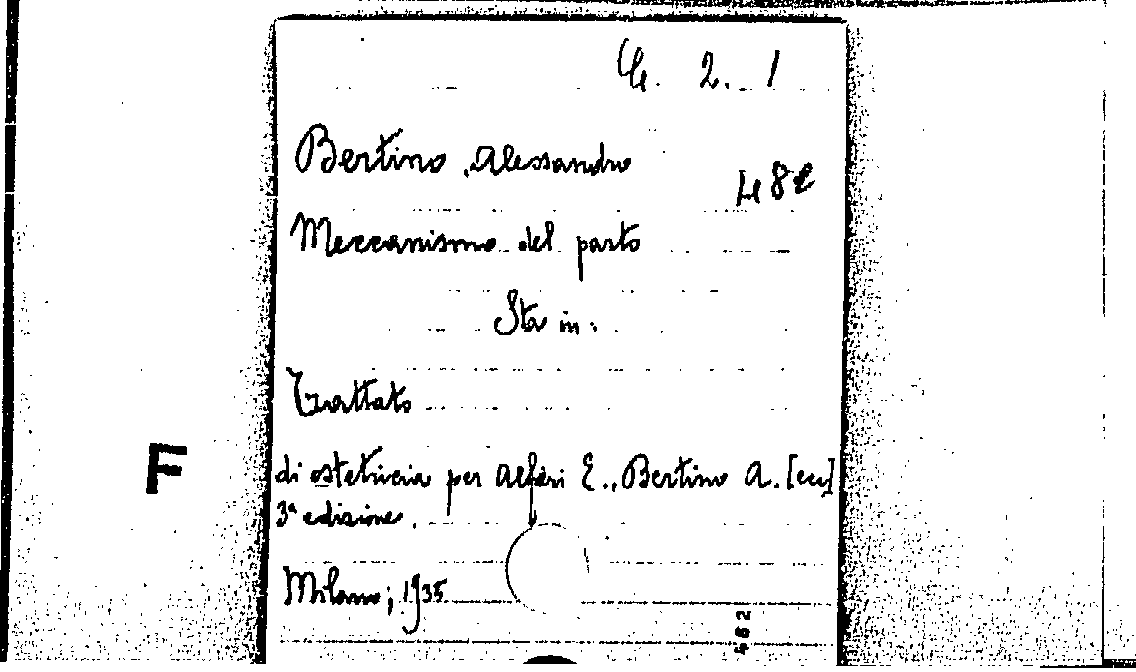 2. 1
Bertino Alessandro
482
Meccanismo del parto
Sta in:
Trattato
di ostetricia per Alfieri E., Bertino A. [ecc]
3ª edizione.
F
Milano, 1935
482